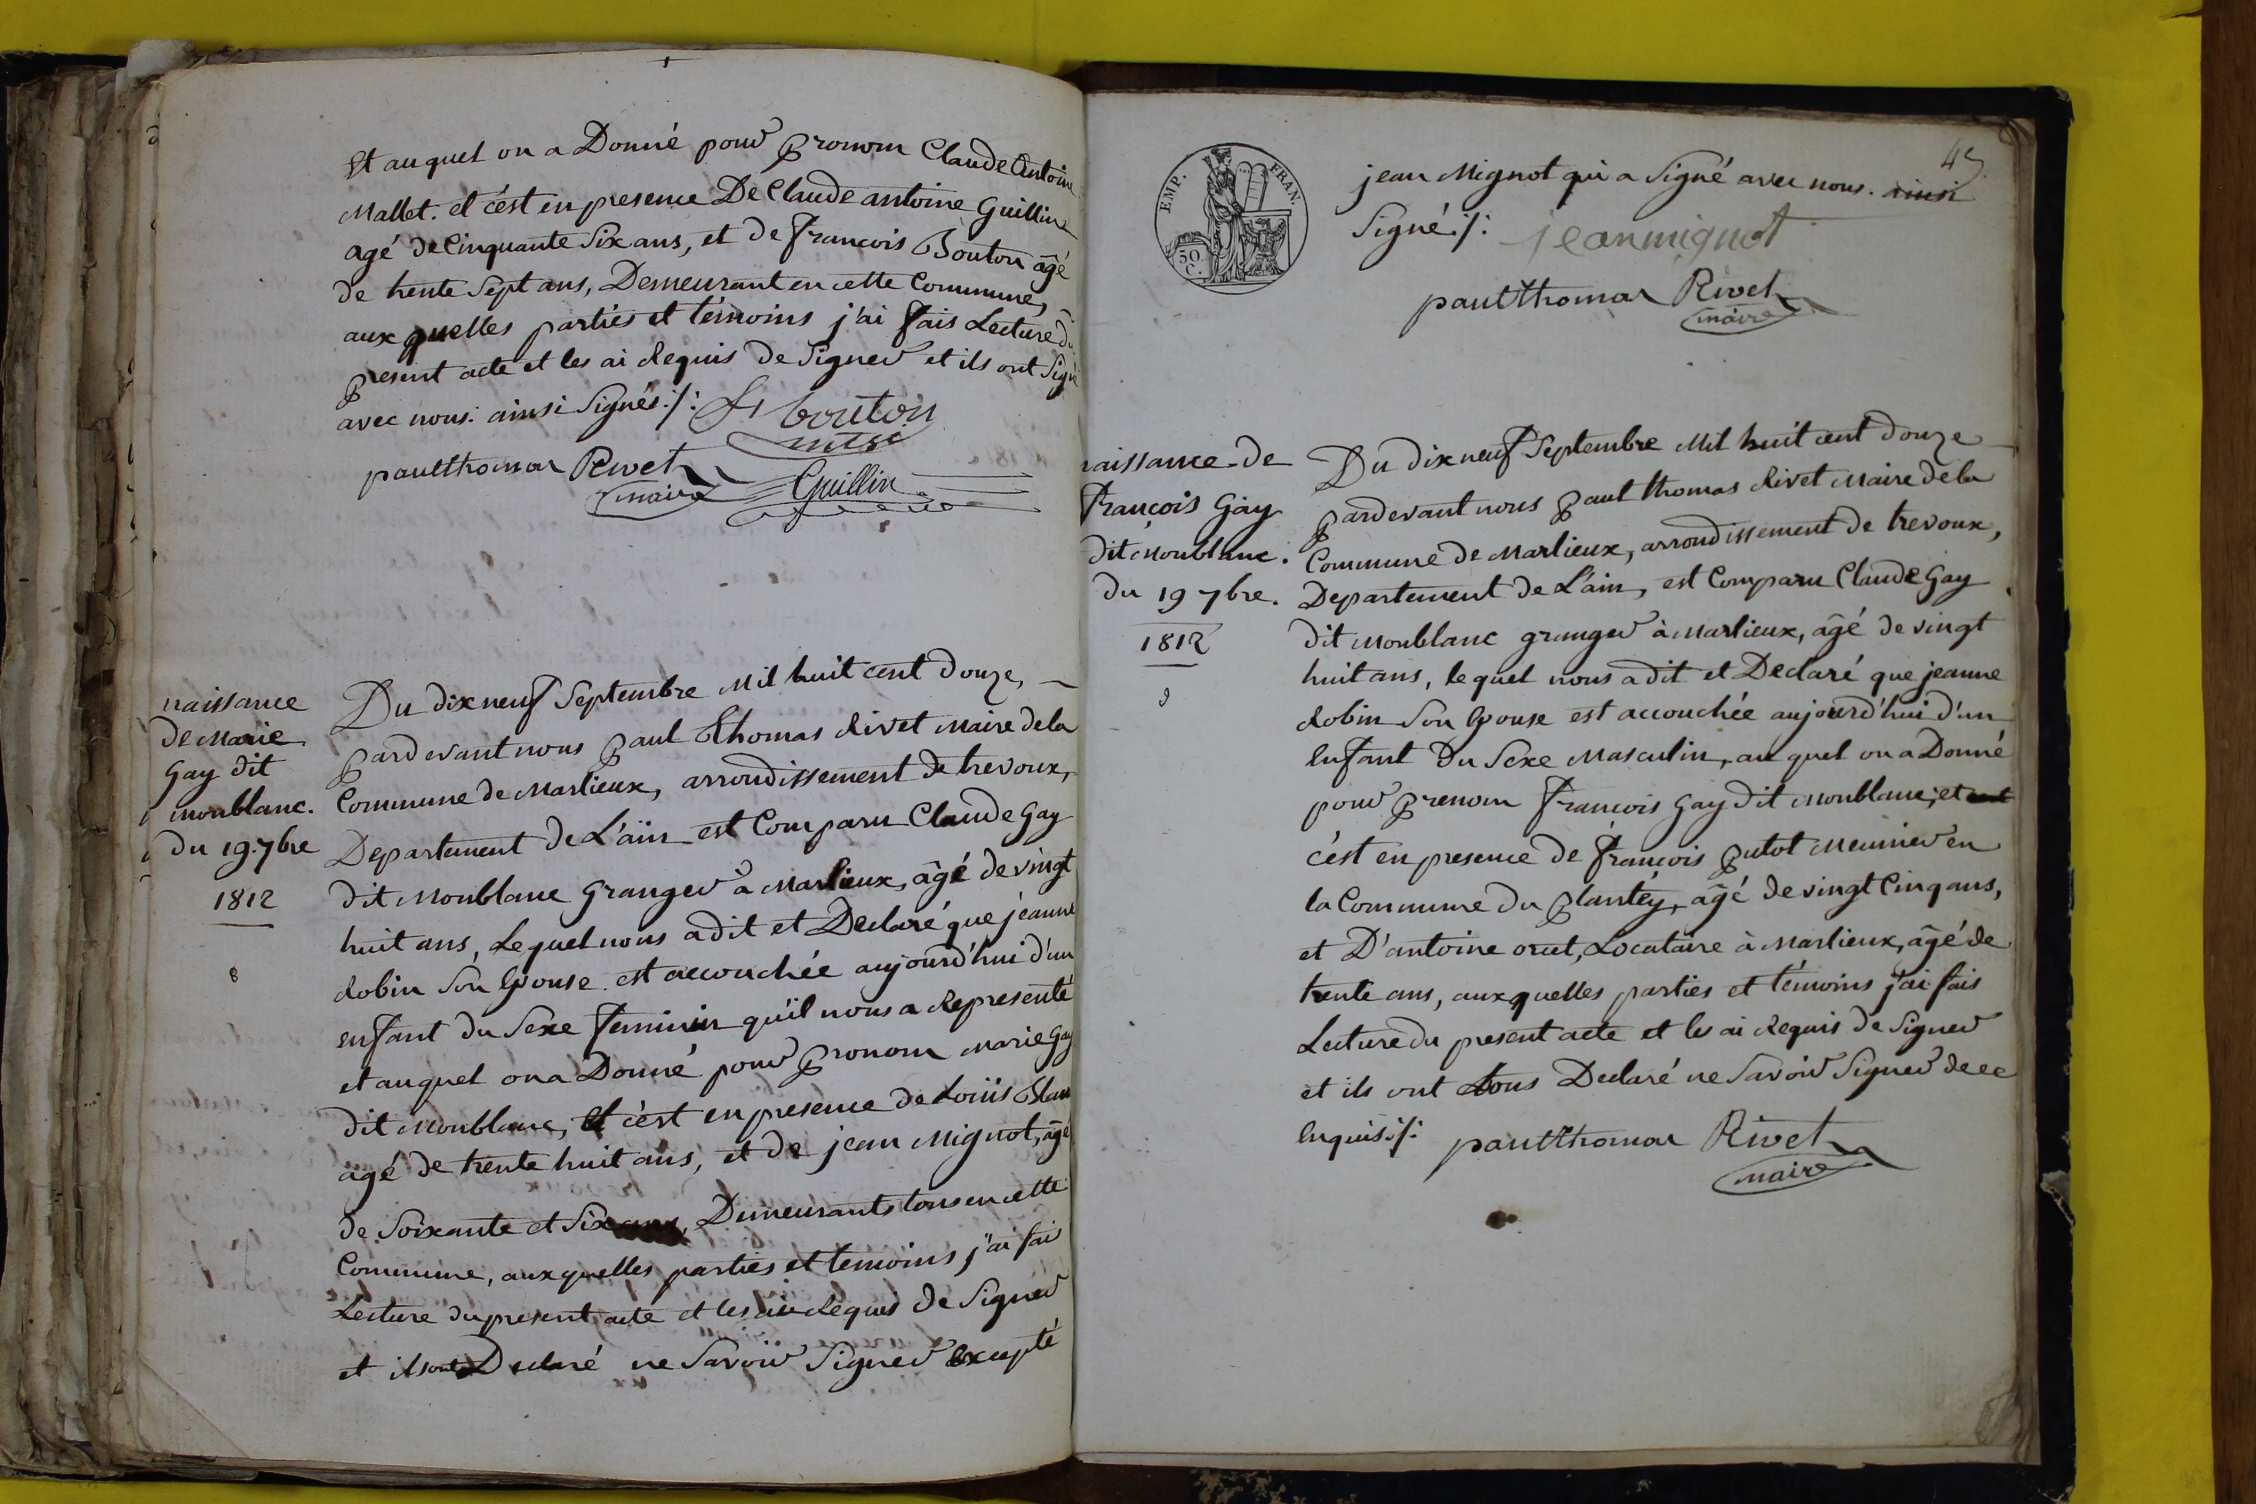 Et auquel on a Donné pour Pronom Claude Antoine
Mallet. et c'est en presence De Claude antoine Guillin
agé de Cinquante Six ans, et de François Bouton âgé
de trente Sept ans, Demeurant en cette Commune,
aux quelles parties et témoins j'ai fais Lecture du
Present acte et les ai Requis de Signer et ils ont Signé
avec nous. ainsi Signés :/: f bouton
paulthomas Rivet
maire Guillin
naissance
De Marie
Gay dit
Monblanc.
du 19. 7bre
1812
8
Du dix neuf Septembre Mil huit cent Douze,
Pardevant nous Paul Thomas Rivet Maire de la
Commune de Marlieux, arrondissement de trevoux,
Departement de L'ain est Comparu Claude Gay
dit Monblanc Granger à Marlieux, âgé de vingt
huit ans, Lequel nous a dit et Declaré que jeanne
Robin Son Epouse est accouchée aujourd'hui d'un
enfant du Sexe feminin qu'il nous a Representé
et auquel on a Donné pour Pronom Marie Gay
dit Monblanc, Et c'est en presence de Loüis Blanc
âgé de trente huit ans, et de jean Mignot, âgé
de Soixante et Six ans, Demeurants tous en cette
Commune, aux quelles parties et temoins j'ai fais
Lecture du present acte et les ai Requis de Signer
et ils ont Declaré ne Savoir Signer Excepté
45
EMP. FRAN.
50
C.
jean Mignot qui a Signé avec nous. ainsi
Signé :/: jean mignot
paulthomas Rivet
maire
naissance de
François Gay
dit Monblanc.
du 19 7bre.
1812
9
Du dix neuf Septembre Mil huit cent douze
Pardevant nous Paul thomas Rivet Maire de la
Commune de Marlieux, arrondissement de trevoux,
Departement de L'ain, est Comparu Claude Gay
dit Monblanc granger à Marlieux, âgé de vingt
huit ans, lequel nous a dit et Declaré que jeanne
Robin Son Epouse est accouchée aujourd'hui d'un
Enfant Du Sexe Masculin, au quel on a Donné
pour Prenom François Gay dit Monblanc, et
c'est en presence de François Putot Meunier en
la Commune du Plantéy, âgé de vingt Cinq ans,
et D'antoine orut, Locataire à Marlieux, âgé de
trente ans, aux quelles parties et témoins j'ai fais
Lecture du present acte et les ai Requis de Signer
et ils ont tous Declaré ne Savoir Signer de ce
Enquis :/: paulthomas Rivet
maire